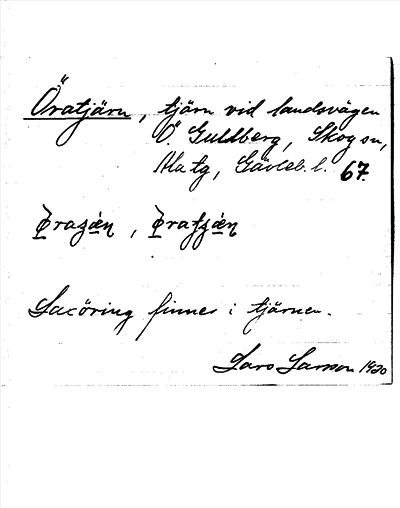 Öratjärn, tjärn vid landsvägen
Ö. Guldberg, Skog sn,
Ala tg, Gävleb. l. 67.
Laxöring finnes i tjärnen.
Lars Larsson 1920